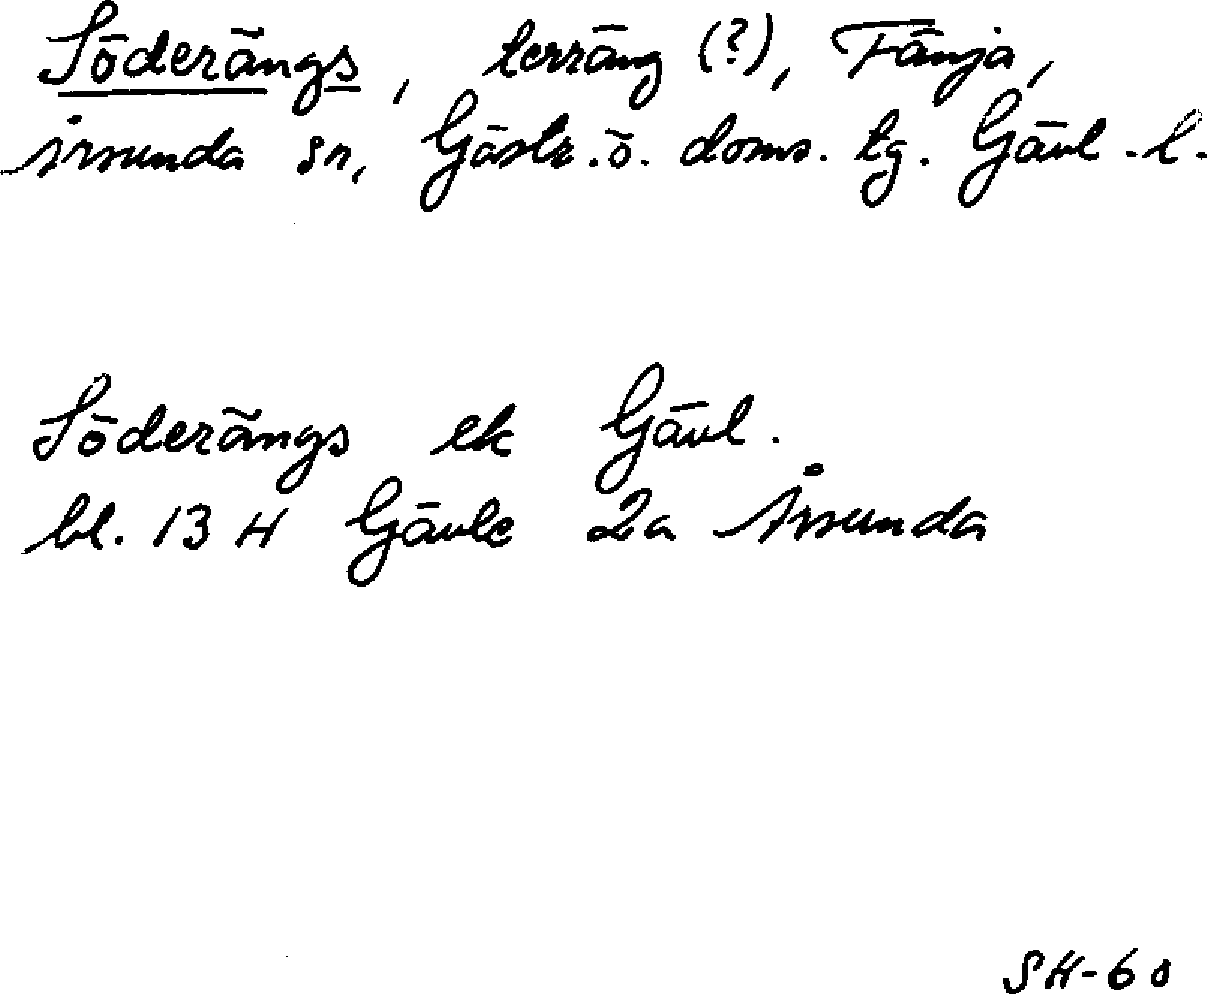 Söderängs, terräng (?), Fänja,
Årsunda sn, Gästr.ö. doms. tg. Gävl.l.
Söderängs ek Gävl.
bl. 13 H Gävle 2a Årsunda
SH-60